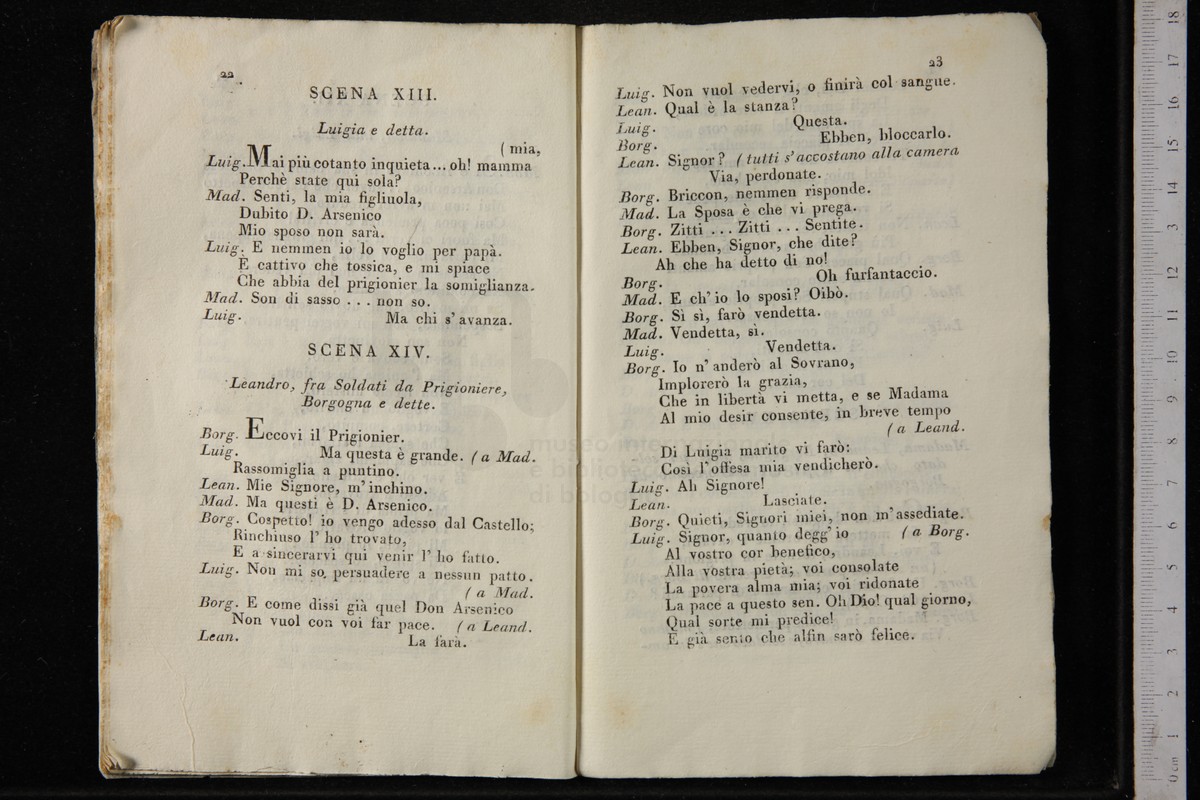 22
SCENA XIII.
Luigia e detta.
( mia,
Luig. Mai più cotanto inquieta... oh! mamma
Perchè state qui sola?
Mad. Senti, la mia figliuola,
Dubito D. Arsenico
Mio sposo non sarà.
Luig. E nemmen io lo voglio per papà.
E cattivo che tossica, e mi spiace
Che abbia del prigionier la somiglianza.
Mad. Son di sasso . . . non so.
Luig. Ma chi s' avanza.
SCENA XIV.
Leandro, fra Soldati da Prigioniere,
Borgogna e dette.
Borg. Eccovi il Prigionier.
Luig. Ma questa è grande. ( a Mad.
Rassomiglia a puntino.
Lean. Mie Signore, m' inchino.
Mad. Ma questi è D. Arsenico.
Borg. Cospetto! io vengo adesso dal Castello;
Rinchiuso l' ho trovato,
E a sincerarvi qui venir l' ho fatto.
Luig. Non mi so persuadere a nessun patto.
( a Mad.
Borg. E come dissi già quel Don Arsenico
Non vuol con voi far pace. ( a Leand.
Lean. La farà.
23
Luig. Non vuol vedervi, o finirà col sangue.
Lean. Qual è la stanza?
Luig. Questa.
Borg. Ebben, bloccarlo.
Lean. Signor? ( tutti s' accostano alla camera
Via, perdonate.
Borg. Briccon, nemmen risponde.
Mad. La Sposa è che vi prega.
Borg. Zitti . . . Zitti . . . Sentite.
Lean. Ebben, Signor, che dite?
Ah che ha detto di no!
Borg. Oh furfantaccio.
Mad. E ch' io lo sposi? Oibò.
Borg. Sì sì, farò vendetta.
Mad. Vendetta, sì.
Luig. Vendetta.
Borg. Io n' anderò al Sovrano,
Implorerò la grazia,
Che in libertà vi metta, e se Madama
Al mio desir consente, in breve tempo
( a Leand.
Di Luigia marito vi farò:
Così l' offesa mia vendicherò.
Luig. Ah Signore!
Lean. Lasciate.
Borg. Quieti, Signori miei, non m' assediate.
Luig. Signor, quanto degg' io ( a Borg.
Al vostro cor benefico,
Alla vostra pietà; voi consolate
La povera alma mia; voi ridonate
La pace a questo sen. Oh Dio! qual giorno,
Qual sorte mi predice!
E già sento che alfin sarò felice.
0 cm 1 2 3 4 5 6 7 8 9 10 11 12 13 14 15 16 17 18